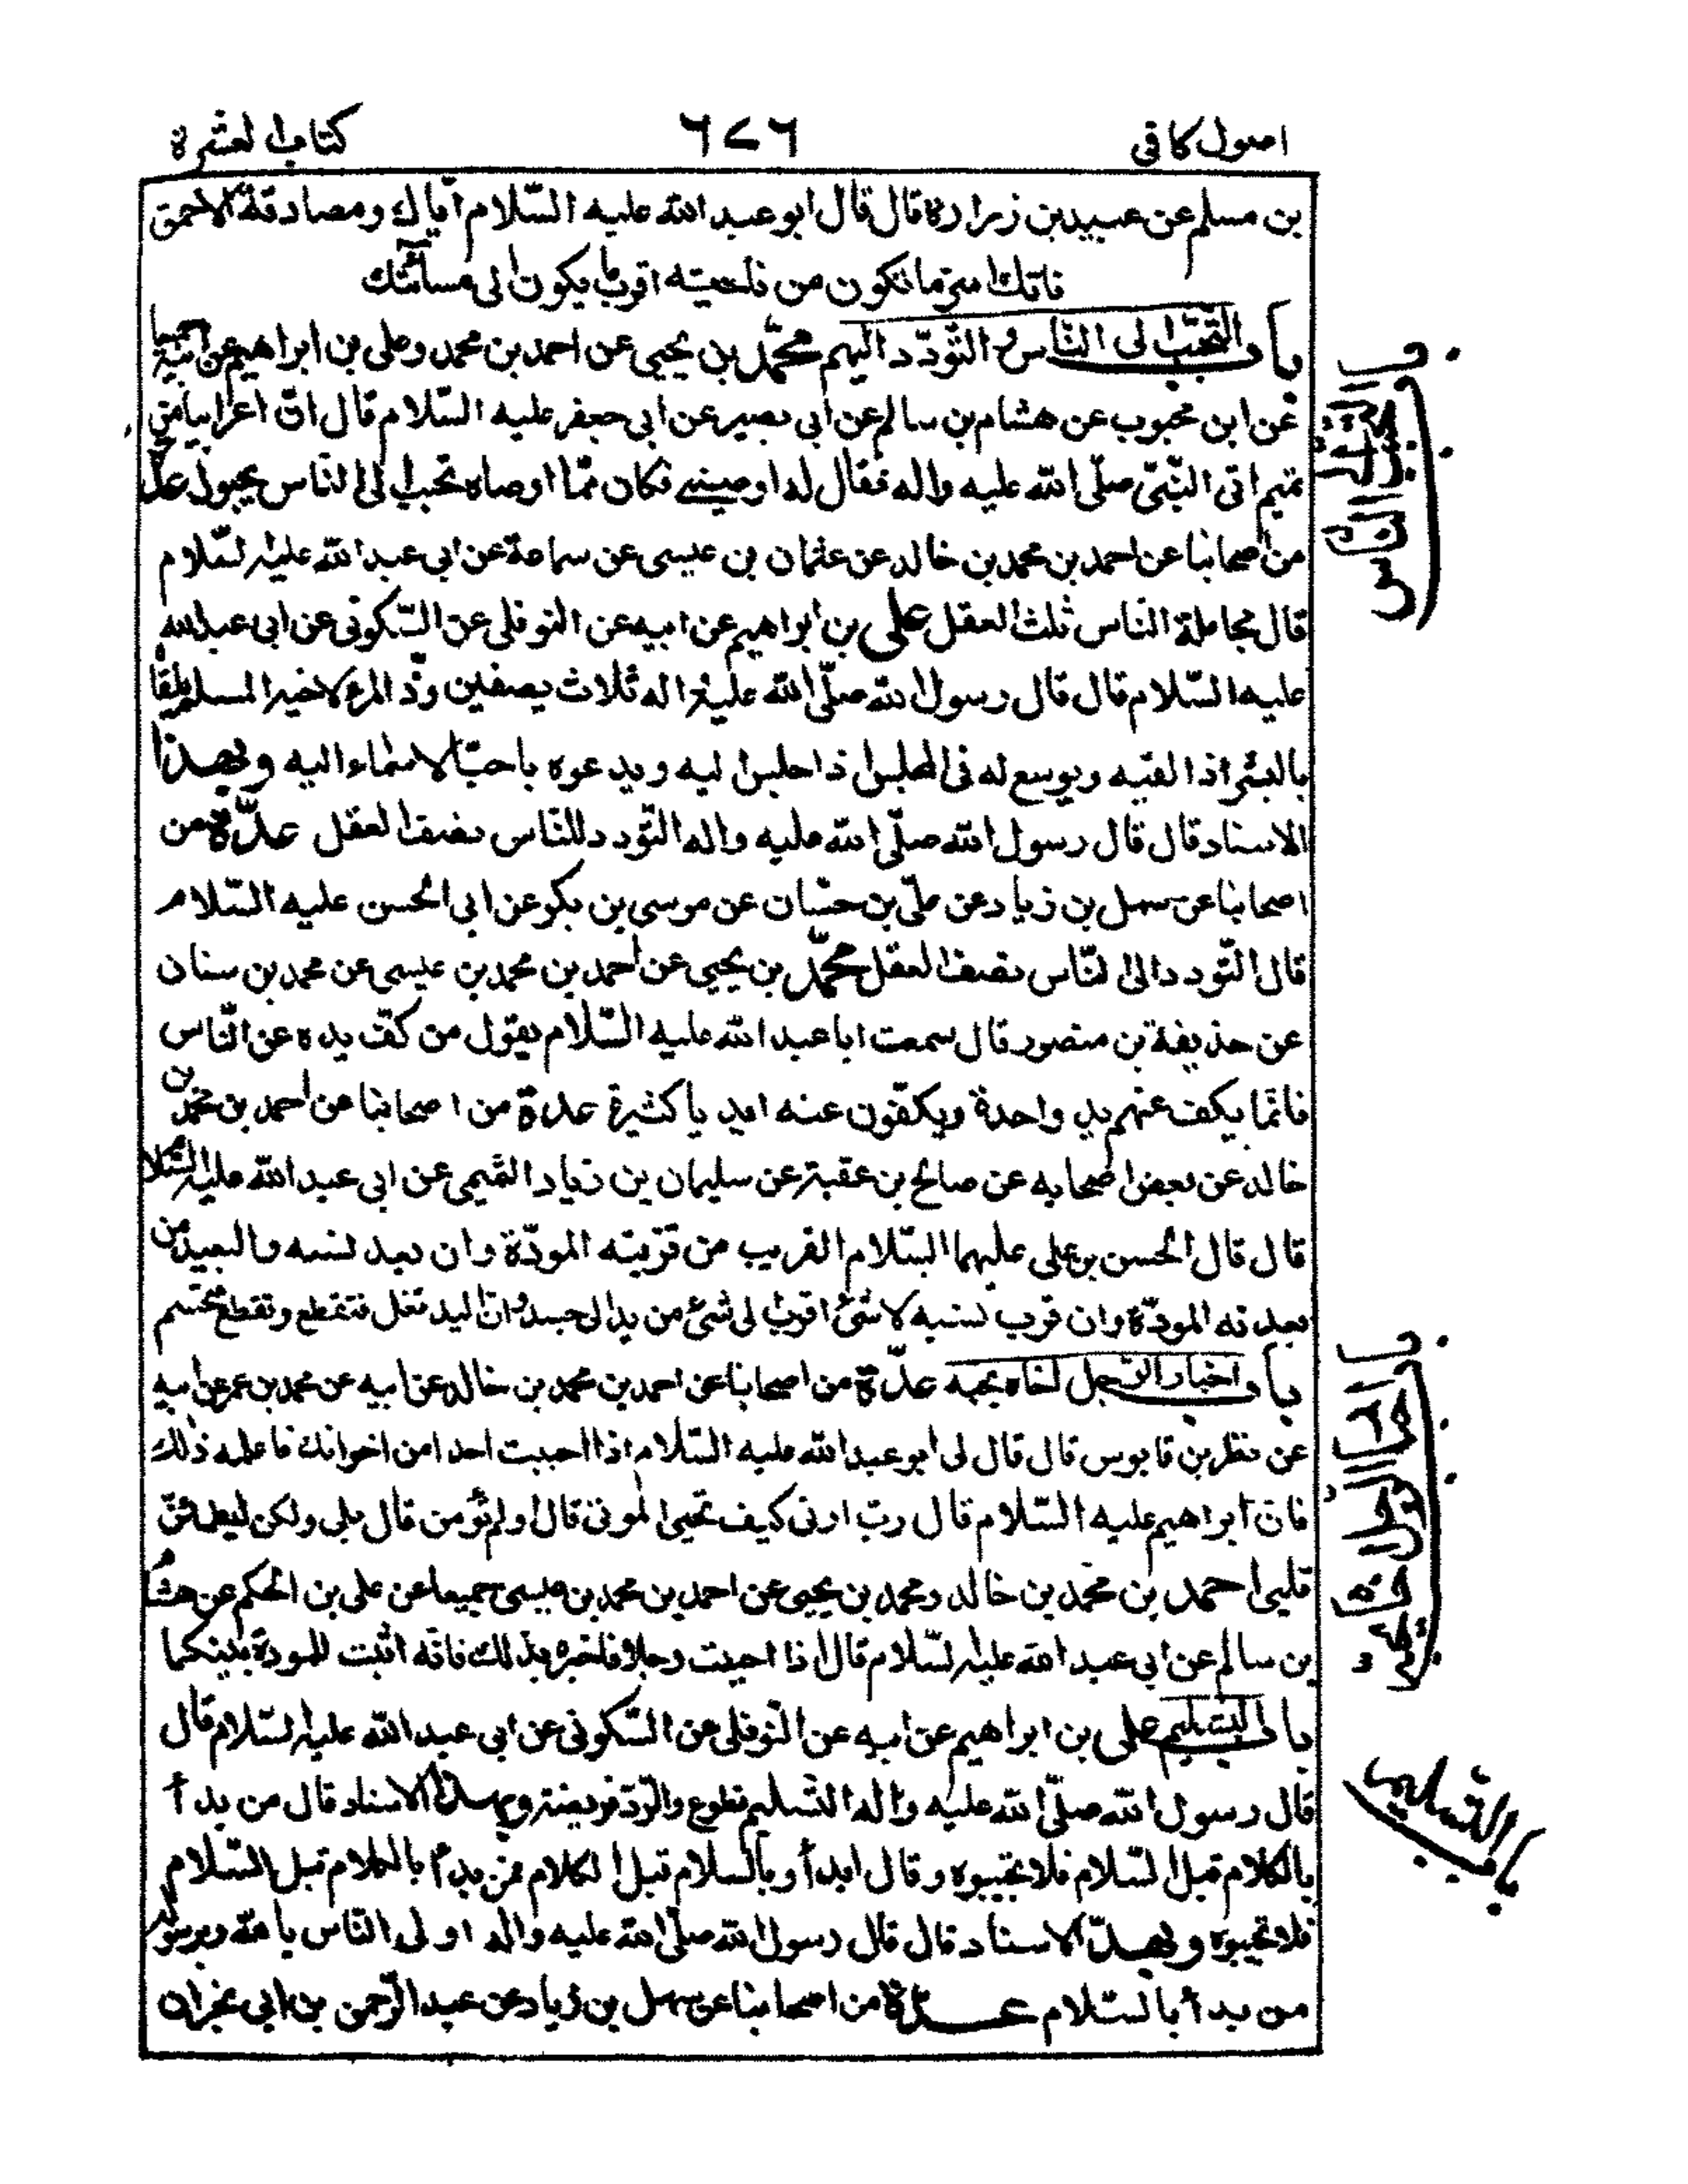 اصول كافى
٦٧٦
كتاب العشرة
بن مسلم عن عبيد بن زرارة قال قال ابو عبد الله عليه السّلام ايّاك ومصادقة الاحمق
فانّك اسرّ ما تكون من ناحيته اقرب ما يكون الى مسائتك
باب التحبّب الى النّاس والتّودّد اليهم محمّد بن يحيى عن احمد بن محمد وعلى بن ابراهيم عن ابيه جميعا
عن ابن محبوب عن هشام بن سالم عن ابى بصير عن ابى جعفر عليه السّلام قال انّ اعرابيا من
تميم اتى النّبىّ صلّى الله عليه واله فقال له اوصينى فكان ممّا اوصاه تحبب الى النّاس يحبوك عدّة
من اصحابنا عن احمد بن محمد بن خالد عن عثمان بن عيسى عن سماعة عن ابى عبد الله عليه السّلام
قال مجاملة النّاس ثلث العقل على بن ابراهيم عن ابيه عن النوفلى عن السّكونى عن ابى عبد الله
عليه السّلام قال قال رسول الله صلّى الله عليه واله ثلاث يصفين ودّ المرء لاخيه المسلم يلقاه
بالبشر اذا لقيه ويوسع له فى المجلس اذا جلس اليه ويدعوه باحبّ الاسماء اليه وبهذا
الاسناد قال قال رسول الله صلّى الله عليه واله التّودد للناس نصف العقل عدّة من
اصحابنا عن سهل بن زياد عن علىّ بن حسّان عن موسى بن بكر عن ابى الحسن عليه السّلام
قال التّودد الى النّاس نصف العقل محمّد بن يحيى عن احمد بن محمد بن عيسى عن محمد بن سنان
عن حذيفة بن منصور قال سمعت ابا عبد الله عليه السّلام يقول من كفّ يده عن النّاس
فانّما يكف عنهم يد واحدة ويكفّون عنه ايد يا كثيرة عدة من اصحابنا عن احمد بن محمد بن
خالد عن بعض اصحابه عن صالح بن عقبة عن سليمان بن زياد التّميمى عن ابى عبد الله عليه السّلام
قال قال الحسن بن على عليهما السّلام القريب من قرّبته المودّة وان بعد نسبه والبعيد من
بعدته المودّة وان قرب نسبه لا شئ اقرب الى شئ من يد الى جسد وانّ اليد تغل فتقطع وتقطع فتحسم
باب اخبار الرّجل اخاه بحبه عدّة من اصحابنا عن احمد بن محمد بن خالد عن ابيه عن محمد بن عمر عن ابيه
عن نظر بن قابوس قال قال لى ابو عبد الله عليه السّلام اذا احببت احدا من اخوانك فاعلمه ذلك
فان ابراهيم عليه السّلام قال ربّ ارنى كيف تحيى الموتى قال اولم تؤمن قال بلى ولكن ليطمئنّ
قلبى احمد بن محمّد بن خالد ومحمد بن يحيى عن احمد بن محمد بن عيسى جميعا عن على بن الحكم عن هشام
بن سالم عن ابى عبد الله عليه السّلام قال اذا احببت رجلا فاخبره بذلك فانّه اثبت للمودة بينكما
باب التسليم على بن ابراهيم عن ابيه عن النّوفلى عن السّكونى عن ابى عبد الله عليه السّلام قال
قال رسول الله صلّى الله عليه واله التّسليم تطوع والرّدّ فريضة وبهذا الاسناد قال من بدأ
بالكلام قبل السّلام فلا تجيبوه وقال ابدأوا بالسلام قبل الكلام فمن بدأ بالكلام قبل السّلام
فلا تجيبوه وبهذا الاسناد قال قال رسول الله صلّى الله عليه واله اولى النّاس بالله وبرسوله
من بدأ بالسّلام عدّة من اصحابنا عن سهل بن زياد عن عبد الرّحمن بن ابى نجران
باب التحبب الى الناس
باب اخبار الرجل اخاه بحبه
باب التسليم